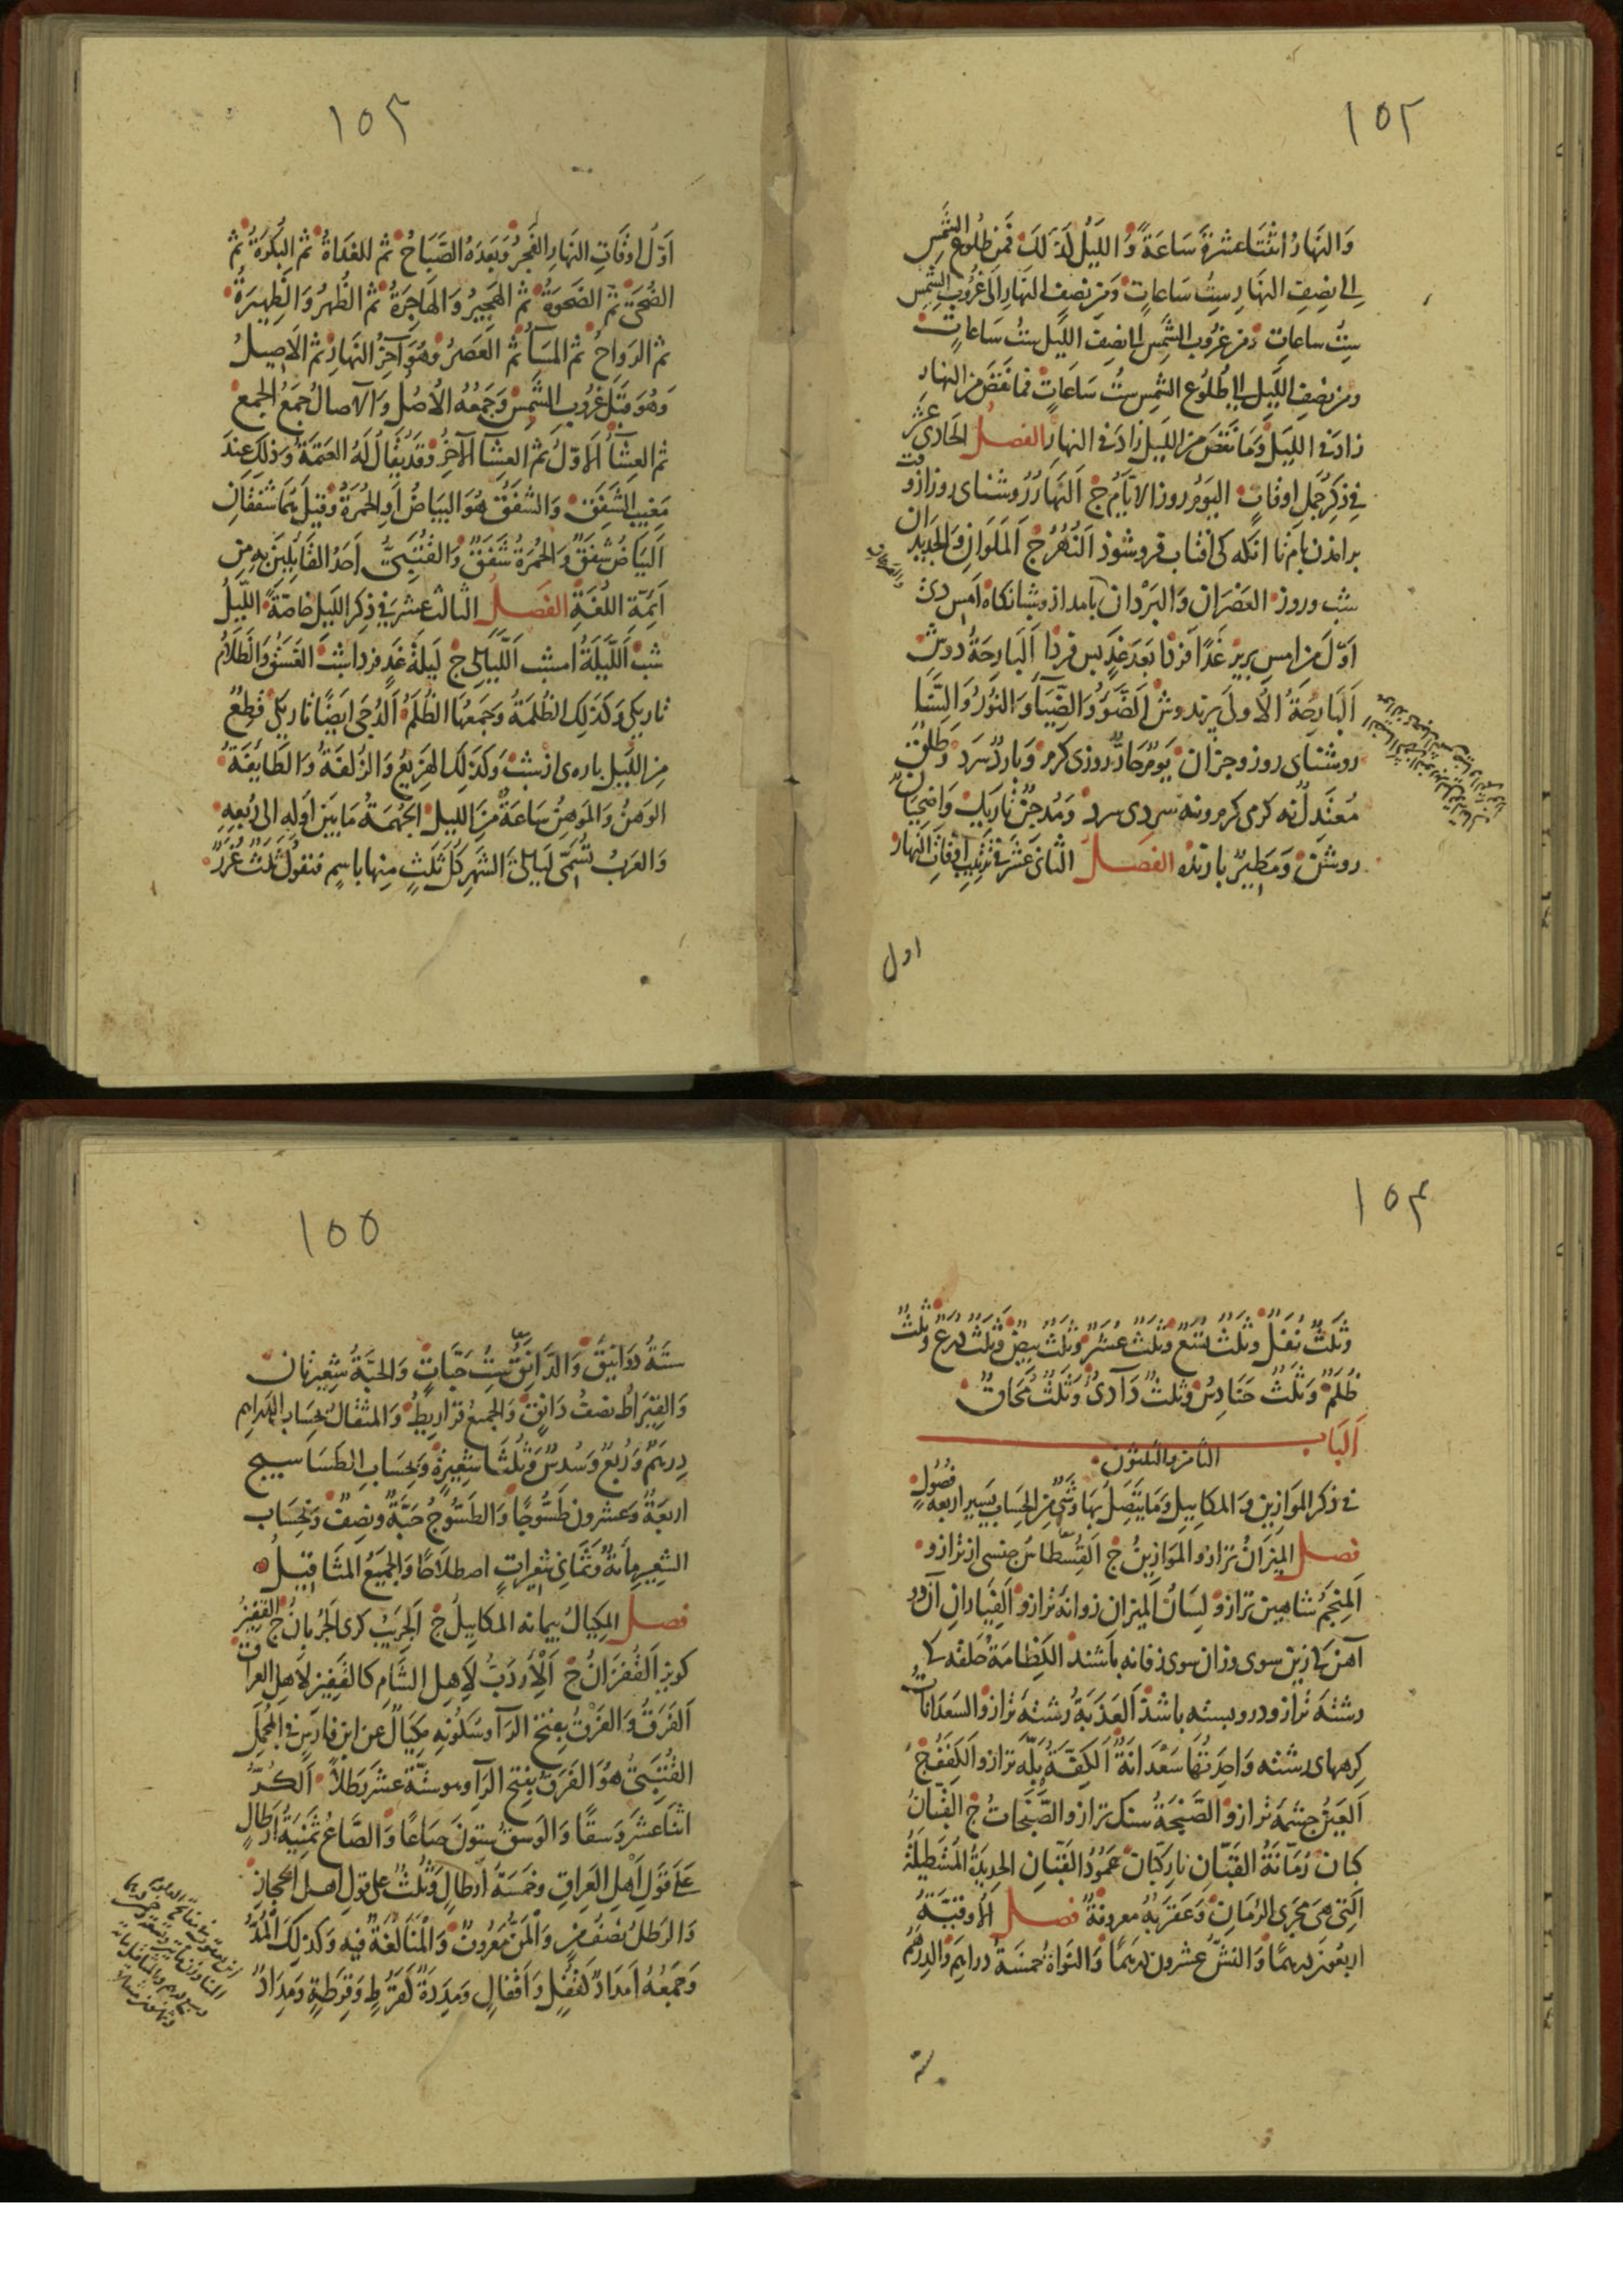 ١٥٢
وَالنَّهَارُ اثْنَتَا عَشْرَةَ سَاعَةً وَاللَّيْلُ كَذَلِكَ فَمِنْ طُلُوعِ الشَّمْسِ
إِلى نِصْفِ النَّهَارِ سِتُّ سَاعَاتٍ وَمِنْ نِصْفِ النَّهَارِ إِلَى غُرُوبِ الشَّمْسِ
سِتُّ سَاعَاتٍ وَمِنْ غُرُوبِ الشَّمْسِ إِلى نِصْفِ اللَّيْلِ سِتُّ سَاعَاتٍ
وَمِنْ نِصْفِ اللَّيْلِ إِلى طُلُوعِ الشَّمْسِ سِتُّ سَاعَاتٍ فَمَا نَقَصَ مِنَ النَّهَارِ
زَادَ فِي اللَّيْلِ وَمَا نَقَصَ مِنَ اللَّيْلِ زَادَ فِي النَّهَارِ الفصل الحَادِي عَشَر
فِي ذِكْرِ جُمَلِ أَوْقَاتٍ اليَوْمُ روز الأَيَّامُ ج اَلنَّهَارُ رُوشنای روز از وقت
برامذن بام تا انكه كی افتاب فروشوذ اَلنُّهُرُ ج اَلمَلَوَانِ وَالجَدِيدَانِ
شب وروز العَصْرَانِ وَالبَرْدَانِ بامداذ وشبانكاه أَمْسِ دی
اَوَّلَ مِنْ امْسِ پریر غَدًا فردا بَعْدَ غَدٍ پس فردا اَلبَارِحَةُ دوش
اَلبَارِحَةُ الأُولَى پرندوش اَلضَّوْءُ وَالضِّيَاءُ وَالنُّورُ وَالسَّنَا
روشنای روز وجزان يَوْمٌ حَارٌّ روزی كرم وَبَارِدٌ سرد وَطَلْقٌ
مُعْتَدِلٌ نه كرمی كرم ونه سردی سرد وَمُدْجِنٌ تاریك وَاضْحِيَانٌ
روشن وَمَطِيرٌ بارنده الفصل الثَّانِي عَشَرَ فِي تَرْتِيبِ أَوْقَاتِ النَّهَارِ
اول
١٥٣
اَوَّلُ اَوْقَاتِ النَّهَارِ الفَجْرُ وَبَعْدَهُ الصَّبَاحُ ثم الغَدَاةُ ثم البُكْرَةُ ثم
الضُّحَى ثم الضَّحْوَةُ ثم الهَجِيرُ وَالهَاجِرَةُ ثم الظُّهْرُ وَالظَّهِيرَةُ
ثم الرَّوَاحُ ثم المَسَاءُ ثم العَصْرُ وَهُوَ آخِرُ النَّهَارِ ثم الأَصِيلُ
وَهُوَ قَبْلَ غُرُوبِ الشَّمْسِ وَجَمْعُهُ الأُصُلُ وَالآصَالُ جَمْعُ الجَمْعِ
ثم العِشَاءُ الأَوَّلُ ثم العِشَاءُ الآخِرُ وَقَدْ يُقَالُ لَهُ العَتَمَةُ وَذَلِكَ عِنْدَ
مَغِيبِ الشَّفَقِ وَالشَّفَقُ هُوَ البَيَاضُ أَوِ الحُمْرَةُ وَقِيلَ هُمَا شَفَقَانِ
اَلبَيَاضُ شَفَقٌ وَالحُمْرَةُ شَفَقٌ وَالقُتَيْبِيُّ أَحَدُ القَائِلِينَ بِهِ مِنْ
اَئِمَّةِ اللُّغَةِ الفصل الثَّالِثَ عَشَرَ فِي ذِكْرِ اللَّيْلِ خَاصَّةً اَللَّيْلُ
شب اَللَّيْلَةُ امشب اَللَّيَالِي ج لَيْلَةُ غَدٍ فرداشب الغَسَقُ وَالظَّلَامُ
تاریكی وَكَذَلِكَ الظُّلْمَةُ وَجَمْعُهَا الظُّلَمُ اَلدُّجَى ايضًا تاریكی قِطْعٌ
مِنَ اللَّيْلِ پاره‌ی از شب وَكَذَلِكَ الهَزِيعُ وَالزُّلْفَةُ وَالطَّايِفَةُ
الوَهْنُ وَالمَوْهِنُ سَاعَةٌ مِنَ اللَّيْلِ الجُهْمَةُ مَا بَيْنَ اَوَّلِهِ إِلى رُبْعِهِ
وَالعَرَبُ تُسَمِّي لَيَالِيَ الشَّهْرِ كُلَّ ثَلَثٍ مِنْهَا بِاسْمٍ فتقول ثَلَثٌ غُرَرٌ
١٥٤
وَثَلَثٌ نُفَلٌ وَثَلَثٌ تُسَعٌ وَثَلَثٌ عُشَرٌ وَثَلَثٌ بِيضٌ وَثَلَثٌ دُرَعٌ وَثَلَثٌ
ظُلَمٌ وَثَلَثٌ حَنَادِسُ وَثَلَثٌ دَآدِيُّ وَثَلَثٌ مُحَاقٌ
اَلبَاب
الثامن والثلثون
في ذكر المَوَازِينِ وَالمَكَايِيلِ وَمَا يَتَّصِلُ بِهَا وَشَيْءٍ مِنَ الحِسَابِ يَسِيرٍ اربعة فُصُولٍ
فصل المِيزَانُ ترازو المَوَازِينُ ج القُسْطَاسُ جنسی از ترازو
اَلمِنْجَمُ شاهين ترازو لِسَانُ المِيزَانِ زوانه ترازو اَلفِيَارَانِ آن دو
آهن كی ازین سوی وزان سوی زفانه باشند الكِظَامَةُ حلقه كی
رشته ترازو درو بسته باشذ اَلعَذَبَةُ رشته ترازو السَّعْدَانَاتُ
كرههای رشته وَاحِدَتُهَا سَعْدَانَةٌ اَلكِفَّةُ پله ترازو الكِفَفُ ج
اَلعَيْنُ چشمه ترازو الصَّنْجَةُ سنك ترازو الصَّنَجَاتُ ج القَبَّانُ
كپان رُمَّانَةُ القَبَّانِ نار كپان عَمُودُ القَبَّانِ الحديدة المُسْتَطِيلَةُ
اَلَّتِي هِيَ مَجْرَى الرُّمَّانِ وَعَقْرَبُهُ معروفةٌ فصل الأُوقِيَّةُ
اربعون دِرهمًا وَالنَّشُّ عشرون دِرهمًا وَالنَّوَاةُ خمسة دراهم وَالدِّرهَمُ
ستة
١٥٥
ستّةُ دوَانِيقَ وَالدَّانِقُ سِتُّ حَبَّاتٍ وَالحَبَّةُ شَعِيرَتَانِ
وَالقِيرَاطُ نصفُ دَانِقٍ وَالجميعُ قراريطُ وَالمثقالُ بحساب الدراهم
دِرهمٌ وَرُبُعٌ وَسُدسٌ وَثُلُثَا شَعِيرَةٍ وَبِحِسَابِ الطَّسَاسِيجِ
اربعةٌ وَعشرون طَسُّوجًا وَالطَّسُّوجُ حَبَّةٌ ونِصفٌ وَبِحِسَاب
الشعيرِ مِأَةٌ وَثَمَانِي شعيراتٍ اصطلاحًا وَالجميعُ المَثَاقِيلُ
فصل المِكيَالُ پیمانه المكاييلُ ج اَلجَرِيبُ كری الجُرْبَانُ ج القَفِيزُ
كویز اَلقُفْزَانُ ج اَلأَرْدَبُّ لأَهلِ الشَّامِ كالقَفِيزِ لأَهلِ العِرَاقِ
اَلفَرَقُ وَالفَرْقُ بِفتح الرَّاء وسُكُونِهِ مِكيَالٌ عن ابن فارسٍ في المجمل
القُتَيْبِيُّ هُوَ الفَرَقُ بفتح الرَّاء وهو ستّة عشر رطلاً اَلكُرُّ
اثنا عشر وَسْقًا وَالوَسْقُ ستونَ صَاعًا وَالصَّاعُ ثَمَنِيَةُ أَرْطَالٍ
عَلَى قَوْلِ اَهْلِ العِرَاقِ وخَمْسَةُ أَرطالٍ وَثُلُثٌ على قول اهل الحجاز
وَالرطلُ نصفُ مَنٍّ وَالمَنُّ معروفٌ وَالمَنَا لُغَةٌ فيه وَكذلك المُدُّ
وَجَمْعُهُ اَمدَادٌ كقُفْلٍ وَاَقْفَالٍ وَمِدَدَةٌ كَقُرْطٍ وَقِرَطَةٍ وَمِدَادٌ